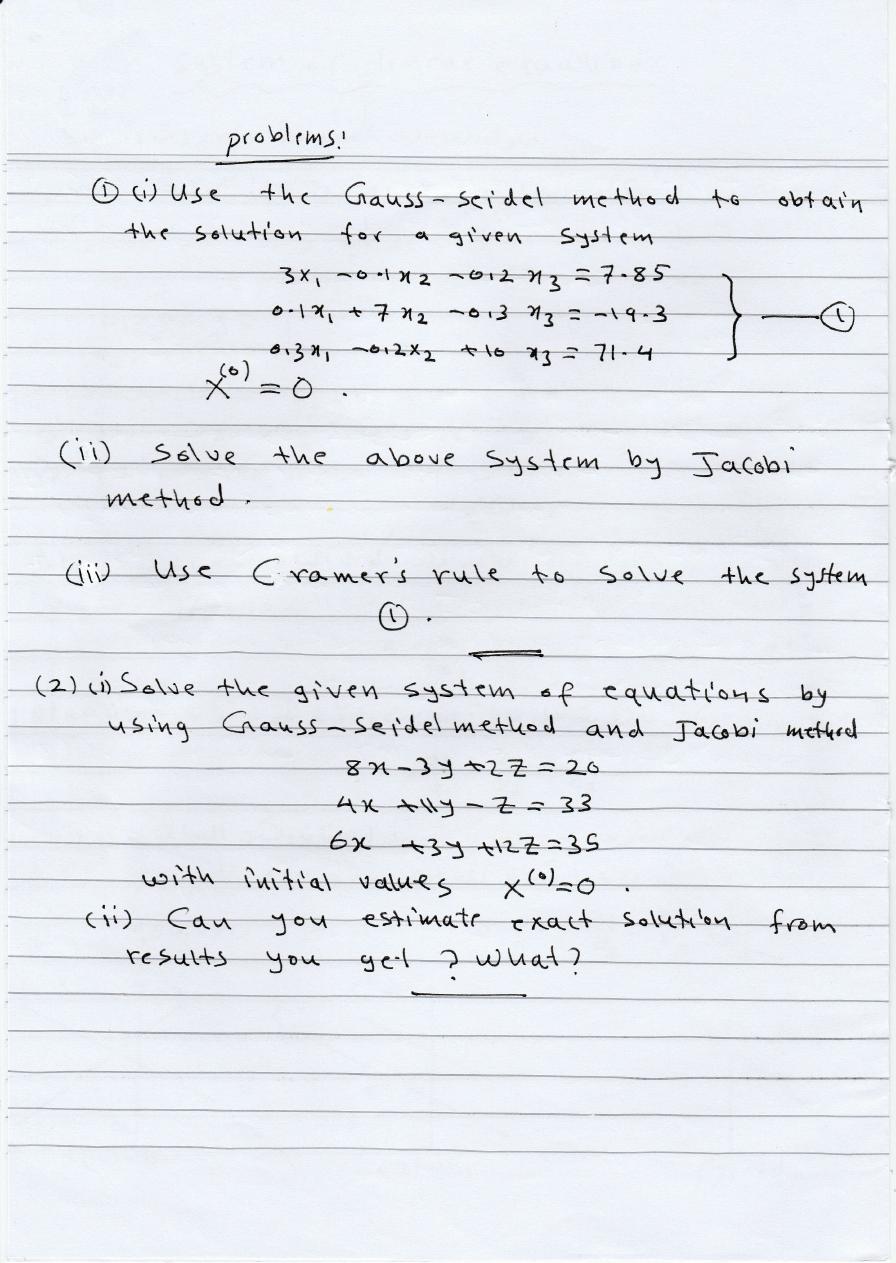 problems:
① (i) Use the Gauss-Seidel method to obtain
the solution for a given system
3x₁ -0.1x₂ -0.2 x₃ = 7.85
0.1x₁ + 7 x₂ -0.3 x₃ = -19.3
0.3x₁ -0.2x₂ +10 x₃ = 71.4
} — ①
X⁽⁰⁾ = 0 .
(ii) Solve the above system by Jacobi
method.
(iii) Use Cramer's rule to solve the system
① .
(2) (i) Solve the given system of equations by
using Gauss-Seidel method and Jacobi method
8x-3y+2z=20
4x +11y - z = 33
6x +3y +12z=35
with initial values X⁽⁰⁾=0 .
(ii) Can you estimate exact solution from
results you get ? What?